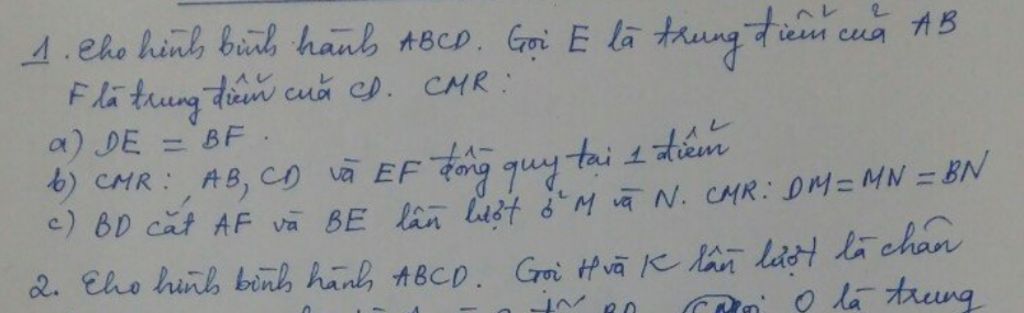 1. Cho hình bình hành ABCD. Gọi E là trung điểm của AB
F là trung điểm của CD. CMR:
a) DE = BF.
b) CMR: AB, CD và EF đồng quy tại 1 điểm
c) BD cắt AF và BE lần lượt ở M và N. CMR: DM = MN = BN
2. Cho hình bình hành ABCD. Gọi H và K lần lượt là chân
BD. Gọi O là trung